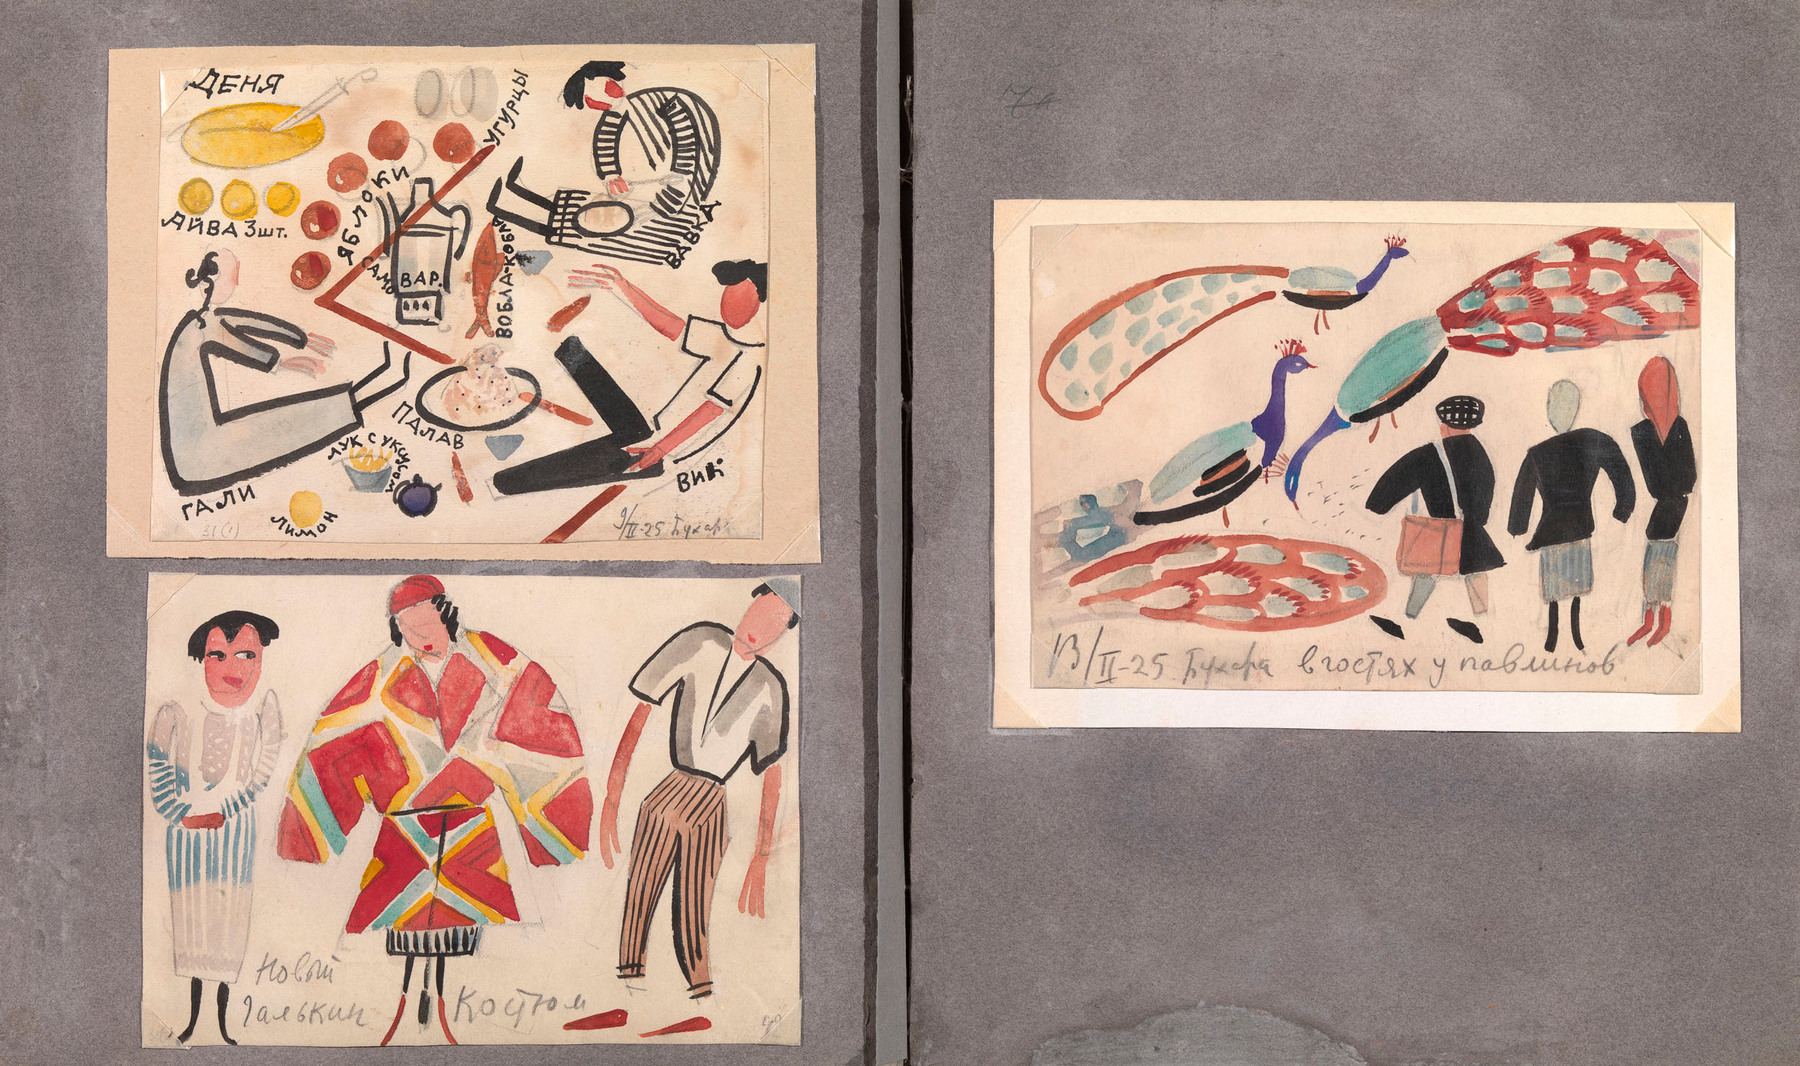 ДЕНЯ
УГУРЦЫ
ЯБЛОКИ
АЙВА 3шт.
САМОВАР.
ВОБЛА-КОБЛА
ВАВКА
ПАЛАВ
ЛУК С УКСУСОМ
ГАЛИ
ЛИМОН
ВИК
31(1)
9/II-25 Бухара
Новый
Галькин Костюм
13/II-25 Бухара в гостях у павлинов